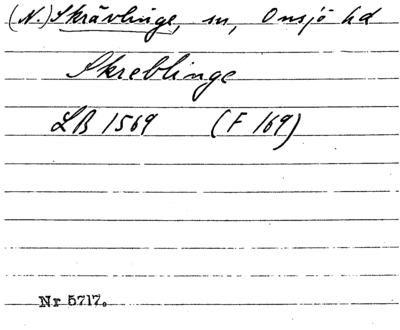 (N.) Skrävlinge, sn, Onsjö hd
Skreblinge
LB 1569 (F 169)
Nr 5717.